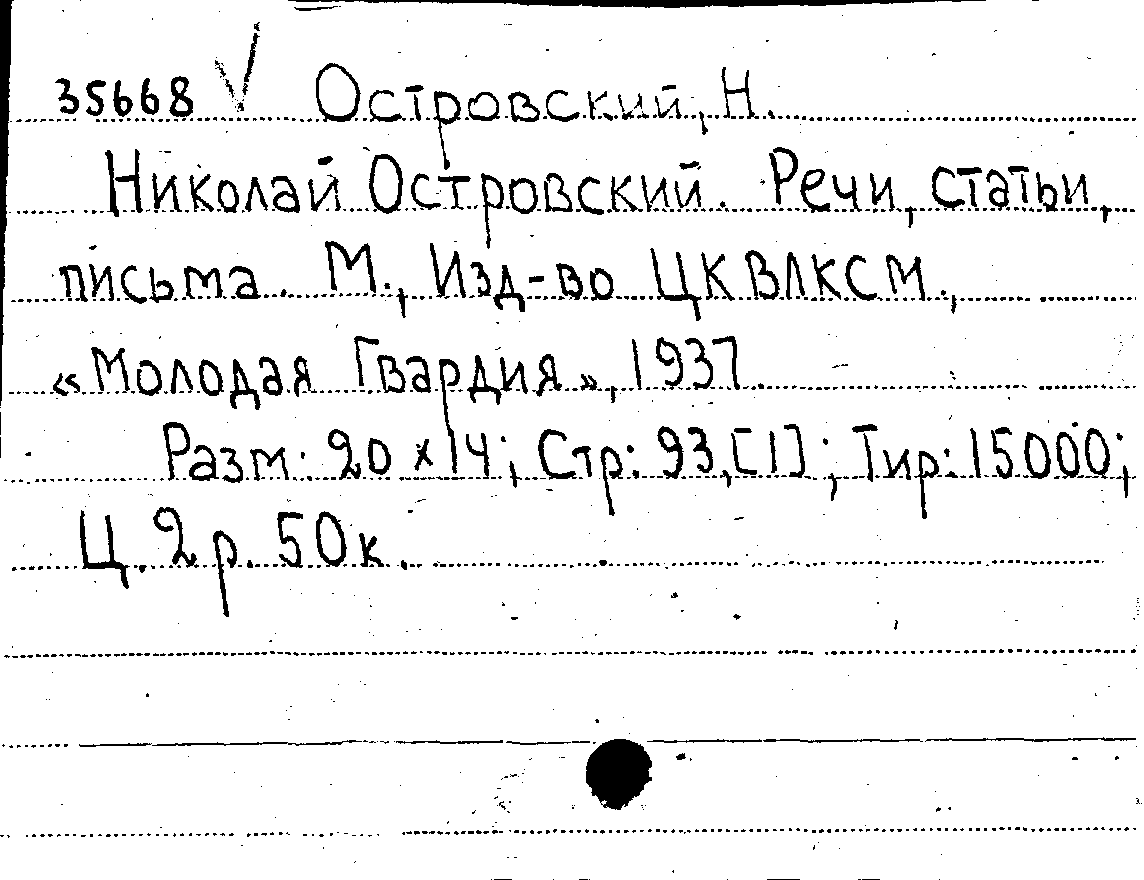 35668 √ Островский, Н.
Николай Островский. Речи, статьи,
письма. М., Изд-во ЦК ВЛКСМ.,
«Молодая Гвардия», 1937.
Разм: 20 х 14; Стр: 93,[1]; Тир: 15000;
Ц. 2 р. 50 к.